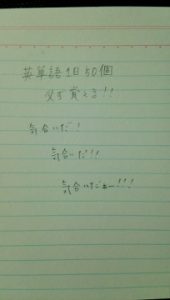 英単語1日50個
必ず覚える!!
気合いだ!
気合いだ!!
気合いだぁー!!!